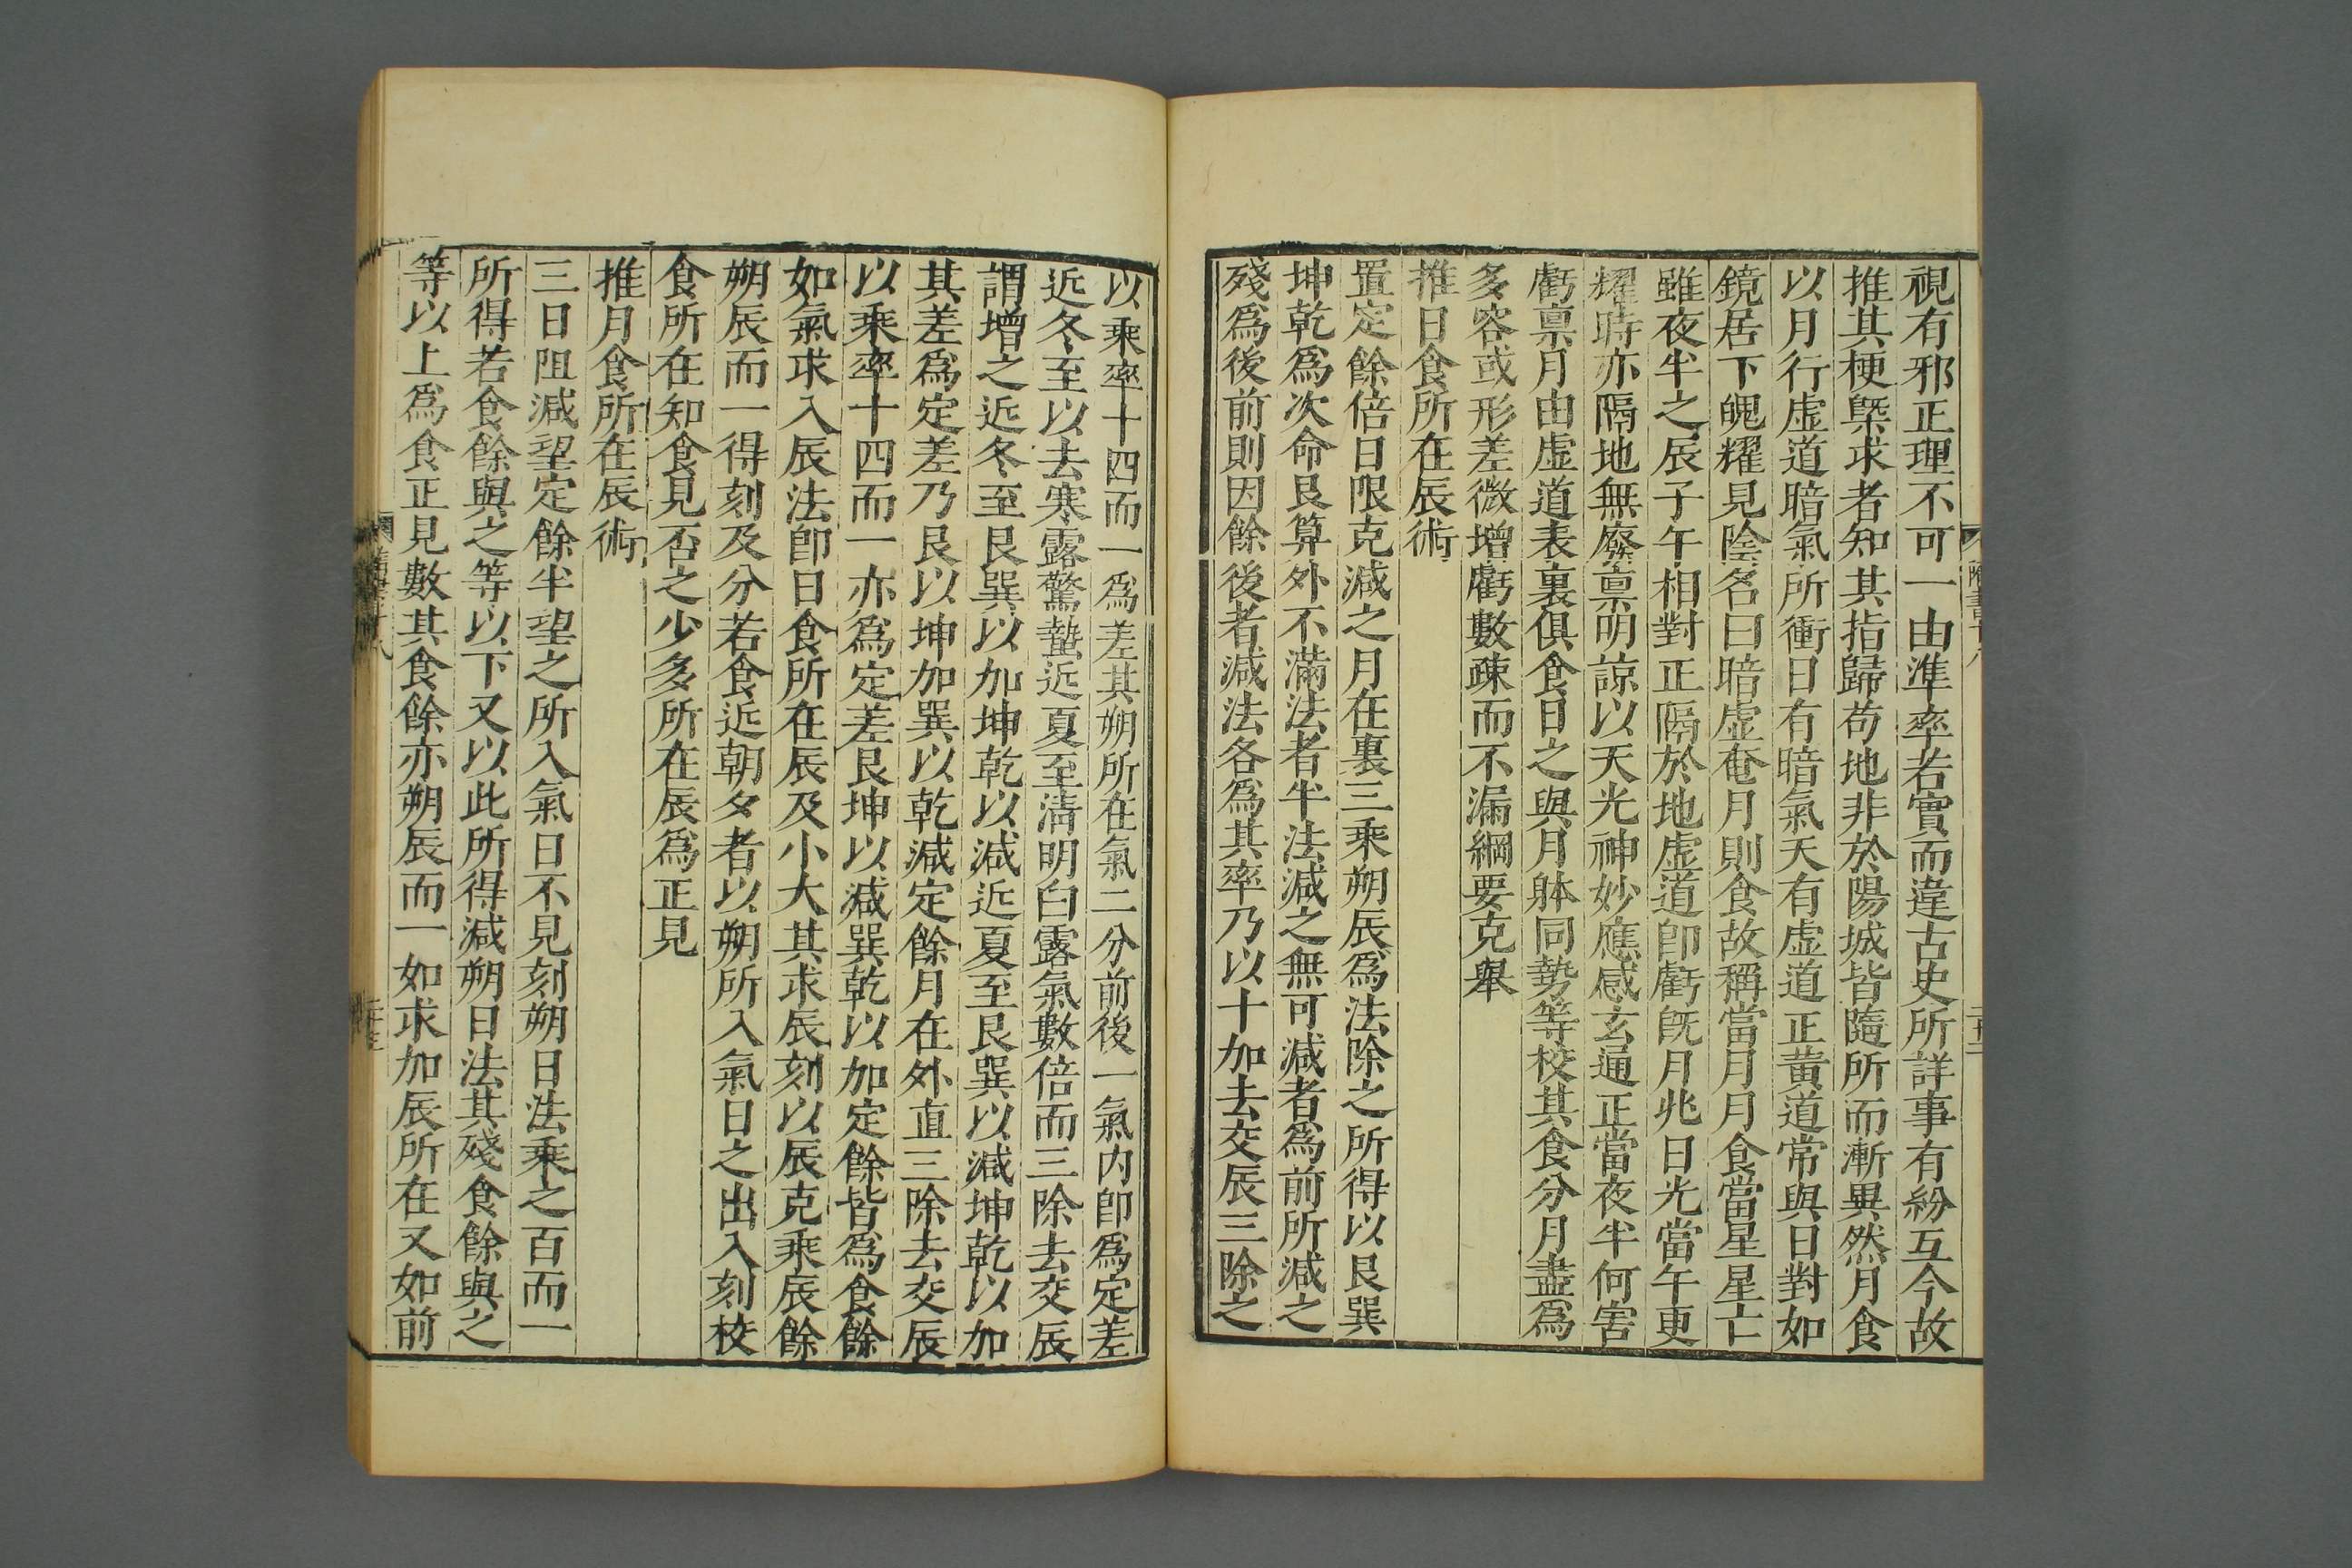 視有邪正理不可一由準率若實而違古史所詳事有紛互今故
推其梗槩求者知其指歸苟地非於陽城皆隨所而漸異然月食
以月行虛道暗氣所衝日有暗氣天有虛道正黃道常與日對如
鏡居下魄耀見陰名曰暗虛奄月則食故稱當月月食當星星亡
雖夜半之辰子午相對正隔於地虛道卽虧旣月兆日光當午更
耀時亦隔地無廢禀明諒以天光神妙應感玄通正當夜半何害
虧禀月由虛道表裏俱食日之與月體同勢等校其食分月盡為
多容或形差微增虧數疎而不漏綱要克舉
推日食所在辰術
置定餘倍日限克減之月在裏三乘朔辰為法除之所得以艮巽
坤乾為次命艮算外不滿法者半法減之無可減者為前所減之
殘為後前則因餘後者減法各為其率乃以十加去交辰三除之
以乘率十四而一為差其朔所在氣二分前後一氣內卽為定差
近冬至以去寒露驚蟄近夏至清明白露氣數倍而三除去交辰
謂增之近冬至艮巽以加坤乾以減近夏至艮巽以減坤乾以加
其差為定差乃艮以坤加巽以乾減定餘月在外直三除去交辰
以乘率十四而一亦為定差艮坤以減巽乾以加定餘皆為食餘
如氣求入辰法卽日食所在辰及小大其求辰刻以辰克乘辰餘
朔辰而一得刻及分若食近朝夕者以朔所入氣日之出入刻校
食所在知食見否之少多所在辰為正見
推月食所在辰術
三日阻減望定餘半望之所入氣日不見刻朔日法乘之百而一
所得若食餘與之等以下又以此所得減朔日法其殘食餘與之
等以上為食正見數其食餘亦朔辰而一如求加辰所在又如前